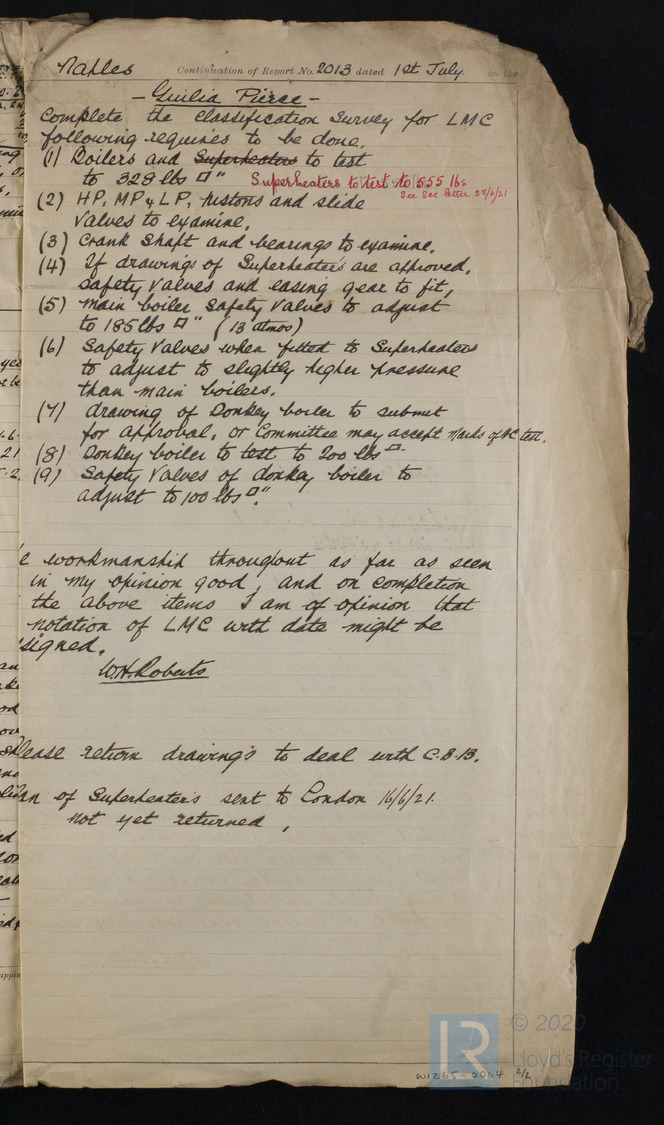 Naples Continuation of Report No. 2013 dated 1st July. on the
- Giulia Pierce -
Complete the classification Survey for LMC
following requires to be done.
(1) Boilers and Superheaters to test
to 328 lbs □" Superheaters to test to 555 lbs
See Sec letter 28/6/21
(2) HP, MP & LP, pistons and slide
valves to examine.
(3) Crank Shaft and bearings to examine.
(4) If drawings of Superheaters are approved,
safety valves and easing gear to fit,
(5) main boiler safety valves to adjust
to 185 lbs □" (13 atmos)
(6) Safety Valves when fitted to Superheaters
to adjust to slightly higher pressure
than main boilers.
(7) drawing of Donkey boiler to submit
for approval. or Committee may accept marks of test.
(8) Donkey boiler to test to 200 lbs □"
(9) Safety Valves of donkey boiler to
adjust to 100 lbs □".
workmanship throughout as far as seen
in my opinion good, and on completion
the above items I am of opinion that
notation of LMC with date might be
signed.
W.H. Roberts
lease return drawing's to deal with C.B.13.
an of Superheater's sent to London 16/6/21.
not yet returned,
© 2020
LR
Lloyd's Register
Foundation
W1265-0064 2/2